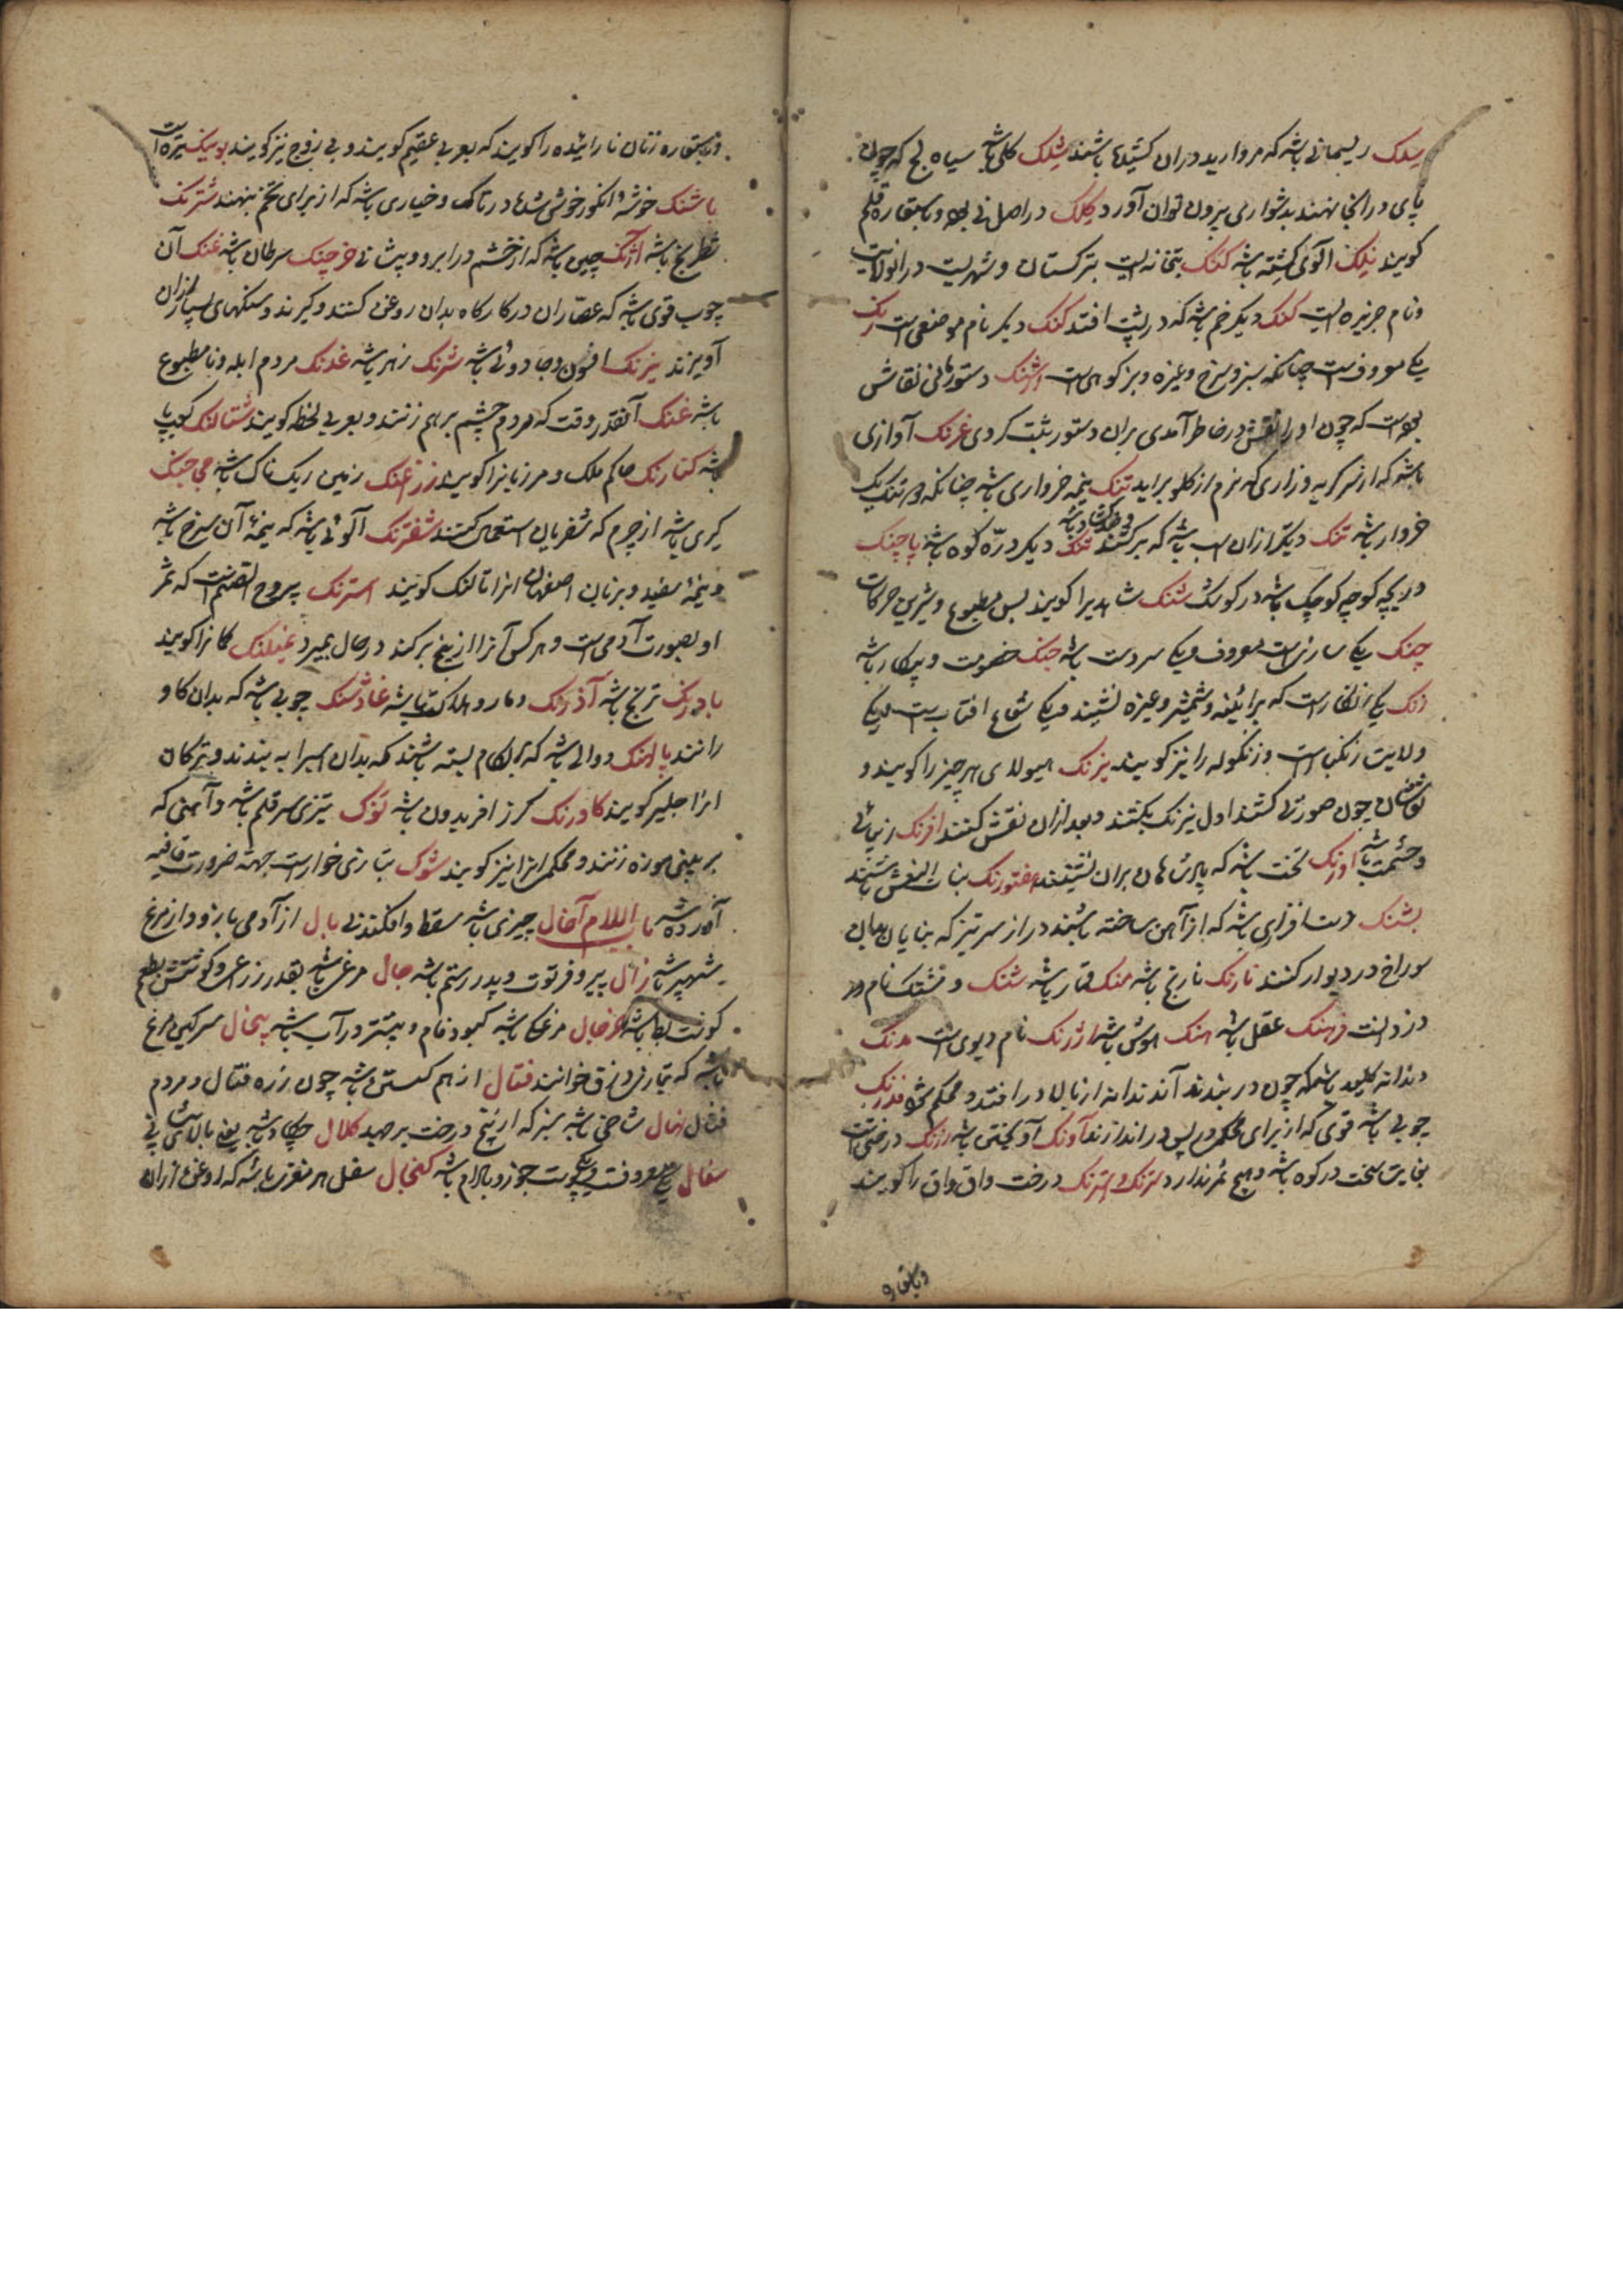 سلک ریسمانی باشد که مروارید دران کشیده باشند شلک کلی باشد سیاه لج که چون
پای در انجا نهند بدشواری بیرون توان آورد کلک در اصل نی بود و باستعاره قلم
کویند نلک الوی کشته باشد کنک بتخانه ایست بترکستان و شهریست درانولایت
ونام جزیره ایست کنک دیکر خم باشد که در پشت افتد کنک دیکر نام موضعی است رنک
یکی معروفست چنانکه سبز و سرخ و غیره و بز کوهی است ارتنک دستور مانی نقاش
بوده است که چون او را نقش در خاطر آمدی بران دستور ثبت کردی غرنک آوازی
باشد که از سر کریه و زاری که نرم از کلو براید تنک نیمه خرواری باشد چنانکه دو تنک یک
خروار باشد تنک دیکر ازان اسب باشد که برکشند تنک دیکر درّه کوه باشد پاچنک
دریچه کوچه کوچک باشد در کوشک شنک شاهدیرا کویند بس مطبوع و شیرین حرکات
چنک یکی سازیست معروف و یکی سر دست باشد جنک خصومت و پیکار باشد
زنک یکی زنکارست که برائینه و شمشیر و غیره نشیند و یکی شعاع افتاب است و یکی
ولایت زنکبارست و زنکوله را نیز کویند نیرنک هیولای هر چیز را کویند و
نقاشان چون صورتی کشند اول نیرنک بکشند و بعد ازان نقش کنند افرنک زیبائی
و حشمت باشد اورنک تخت باشد که پادشاهان بران نشینند هفتورنک بنات النعش باشند
بشنک دست افزاری باشد که از آهن ساخته باشند دراز سر تیز که بنایان بدان
سوراخ در دیوار کنند نارنک نارنج باشد منک قمار باشد شنک و مشنک نام دو
دزد است فرهنک عقل باشد هنک هوش باشد ارژنک نام دیوی است مدنک
دندانه کلید باشد که چون در ببندند آن دندانه از بالا در افتد و محکم شود فدرنک
چوبی باشد قوی که از برای محکمی در پس در اندازند آونک آویختن باشد زرنک درختی است
بغایت سخت در کوه باشد و هیچ ثمر ندارد سترنک و استرنک درخت واق واق را کویند
و باستعاره
و باستعاره زنان نازاینده را کویند که بعربی عقیم کویند و بی زوج نیز کویند
باشنک خوشه انکور خوش شده در تاک و خیاری باشد که از برای تخم بنهند شترنک
شطرنج باشد آژنک چین باشد که از خشم در ابرو و پیشانی خرچنک سرطان باشد غنک آن
چوب قوی باشد که عصّاران در کارکاه بدان روغن کشند و کیرند و سنکهای بسیار ازان
آویزند نیرنک افسون و جادوئی باشد شرنک زهر باشد غدنک مردم ابله و نامطبوع
باشد غنک آنقدر وقت که مردم چشم بر هم زنند و بعربی لحظه کویند شتالنک کعب پا
باشد کنارنک حاکم ملک و مرزبانرا کویند زرغنک زمین ریک ناک باشد
باشد از چرم که استعمال کنند شفترنک آلوئی باشد که نیمهٔ آن سرخ باشد
و نیمهٔ سفید و بزبان اصفهان انرا تالنک کویند استرنک یبروح الصنم است که ثمر
او بصورت آدمی است و هر کس آنرا از بیخ برکند در حال بمیرد کانرا کویند
بادرنک ترنج باشد آذرنک دمار و هلاکت باشد غاوشنک چوبی باشد که بدان کاو
رانند پالاهنک دوالی باشد که بر لکام بسته باشند که بدان اسبرا به بندند و ترکان
انرا کویند کاورنک کرز افریدون باشد نوک تیزی سر قلم باشد و آهنی که
بر بینی موزه زنند و محکمی انرا نیز کویند شوک بتازی خوارست جهة ضرورت قافیه
آورده شد باب اللام آخال چیزی باشد سقط و افکندنی بال از آدمی بازو و از مرغ
شهپر باشد زال پیر و فرتوت و پدر رستم باشد جال مرغی باشد بقدر زرغی و کوشتش بطعم
کوشت بط باشد خرجال مرغکی باشد کبود فام و بیشتر در آب باشد پیخال سرکین مرغ
باشد که بتازی ذرق خوانند فتال از هم کسستن باشد چون زره فتال و مردم
فتال نهال شاخی باشد سبز که از بیخ درخت برجهد کلال چکاد باشد یعنی بالای پیشانی
سفال یکی معروفست و دیکر پوست جوز و بادام باشد کنجال سفل هر مغزی باشد که روغن ازان